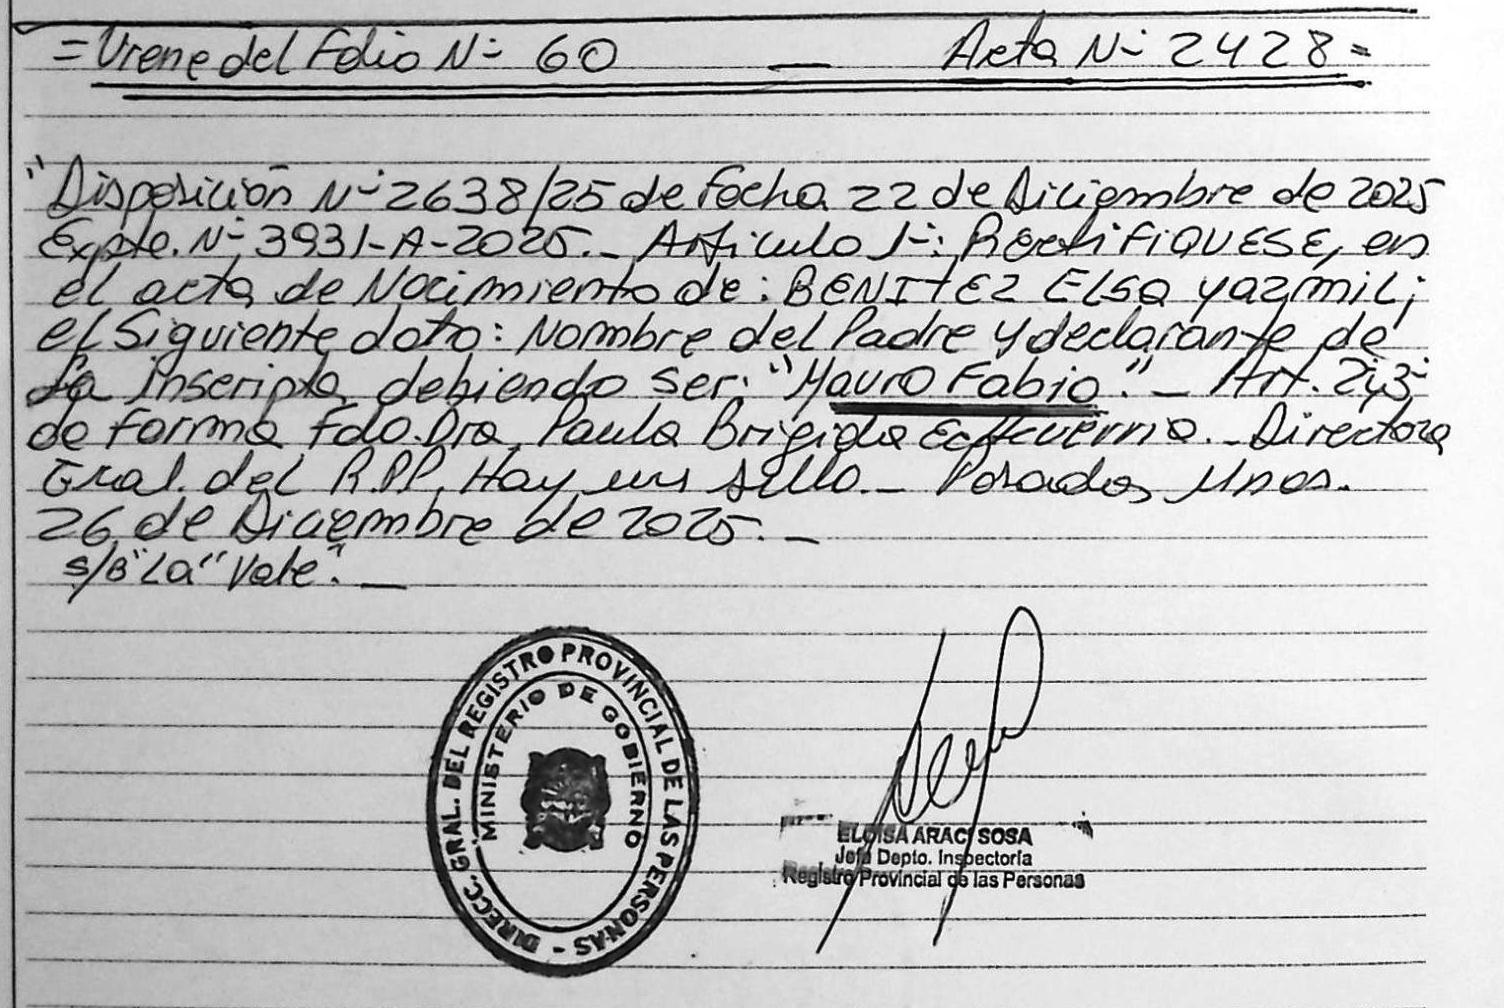 =Viene del Folio Nº 60 — Acta Nº 2428=
"Disposición Nº 2638/25 de Fecha 22 de Diciembre de 2025
Expte. Nº 3931-A-2025._ Artículo 1º: RectiFIQUESE, en
el acta de Nacimiento de: BENITEZ ELSA YAZMIL;
el Siguiente dato: Nombre del Padre y declarante de
La inscripta debiendo ser: "Mauro Fabio"._ Art. 2º y 3º
de Forma Fdo. Dra. Paula Brigida Echeverria._ Directora
Gral. del R.P.P. Hay un sello._ Posadas, Mnes.
26 de Diciembre de 2025._
S/B "La" Vale". _
DIRECC. GRAL. DEL REGISTRO PROVINCIAL DE LAS PERSONAS -
MINISTERIO DE GOBIERNO
ELOISA ARACI SOSA
Jefa Depto. Inspectoría
Registro Provincial de las Personas